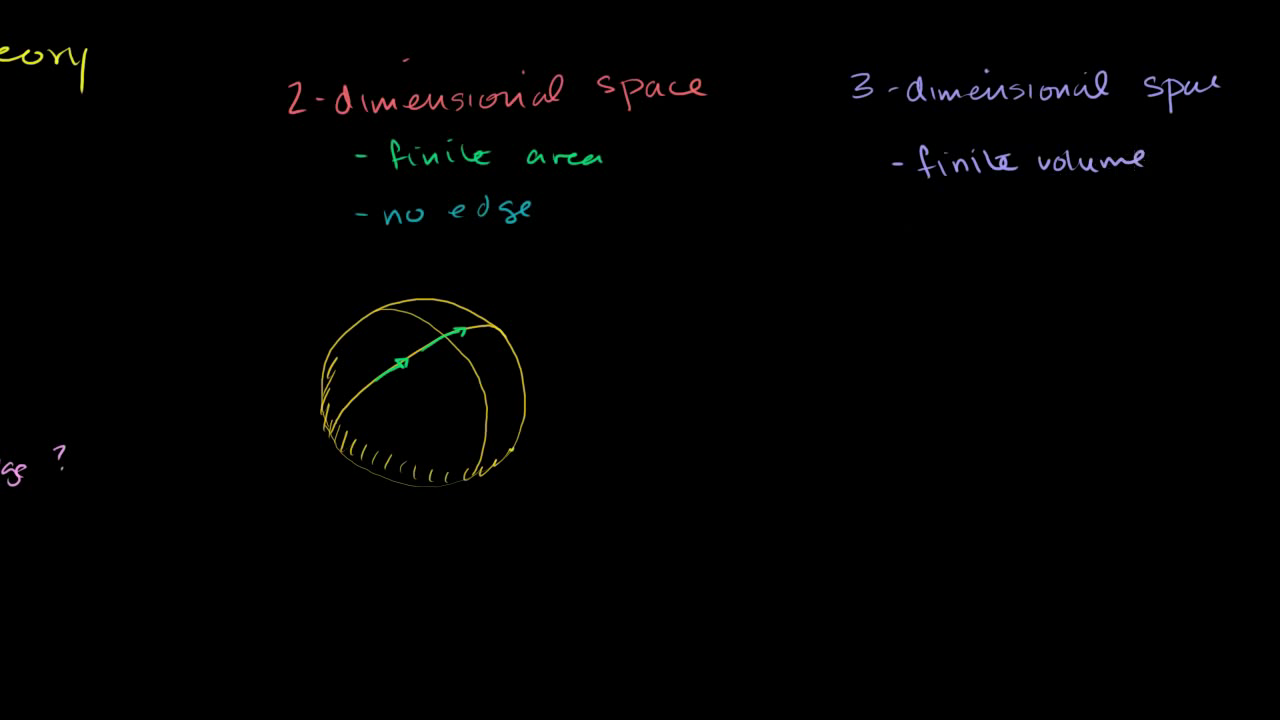 eory
2-dimensional space
- finite area
- no edge
3-dimensional space
- finite volume
ge ?